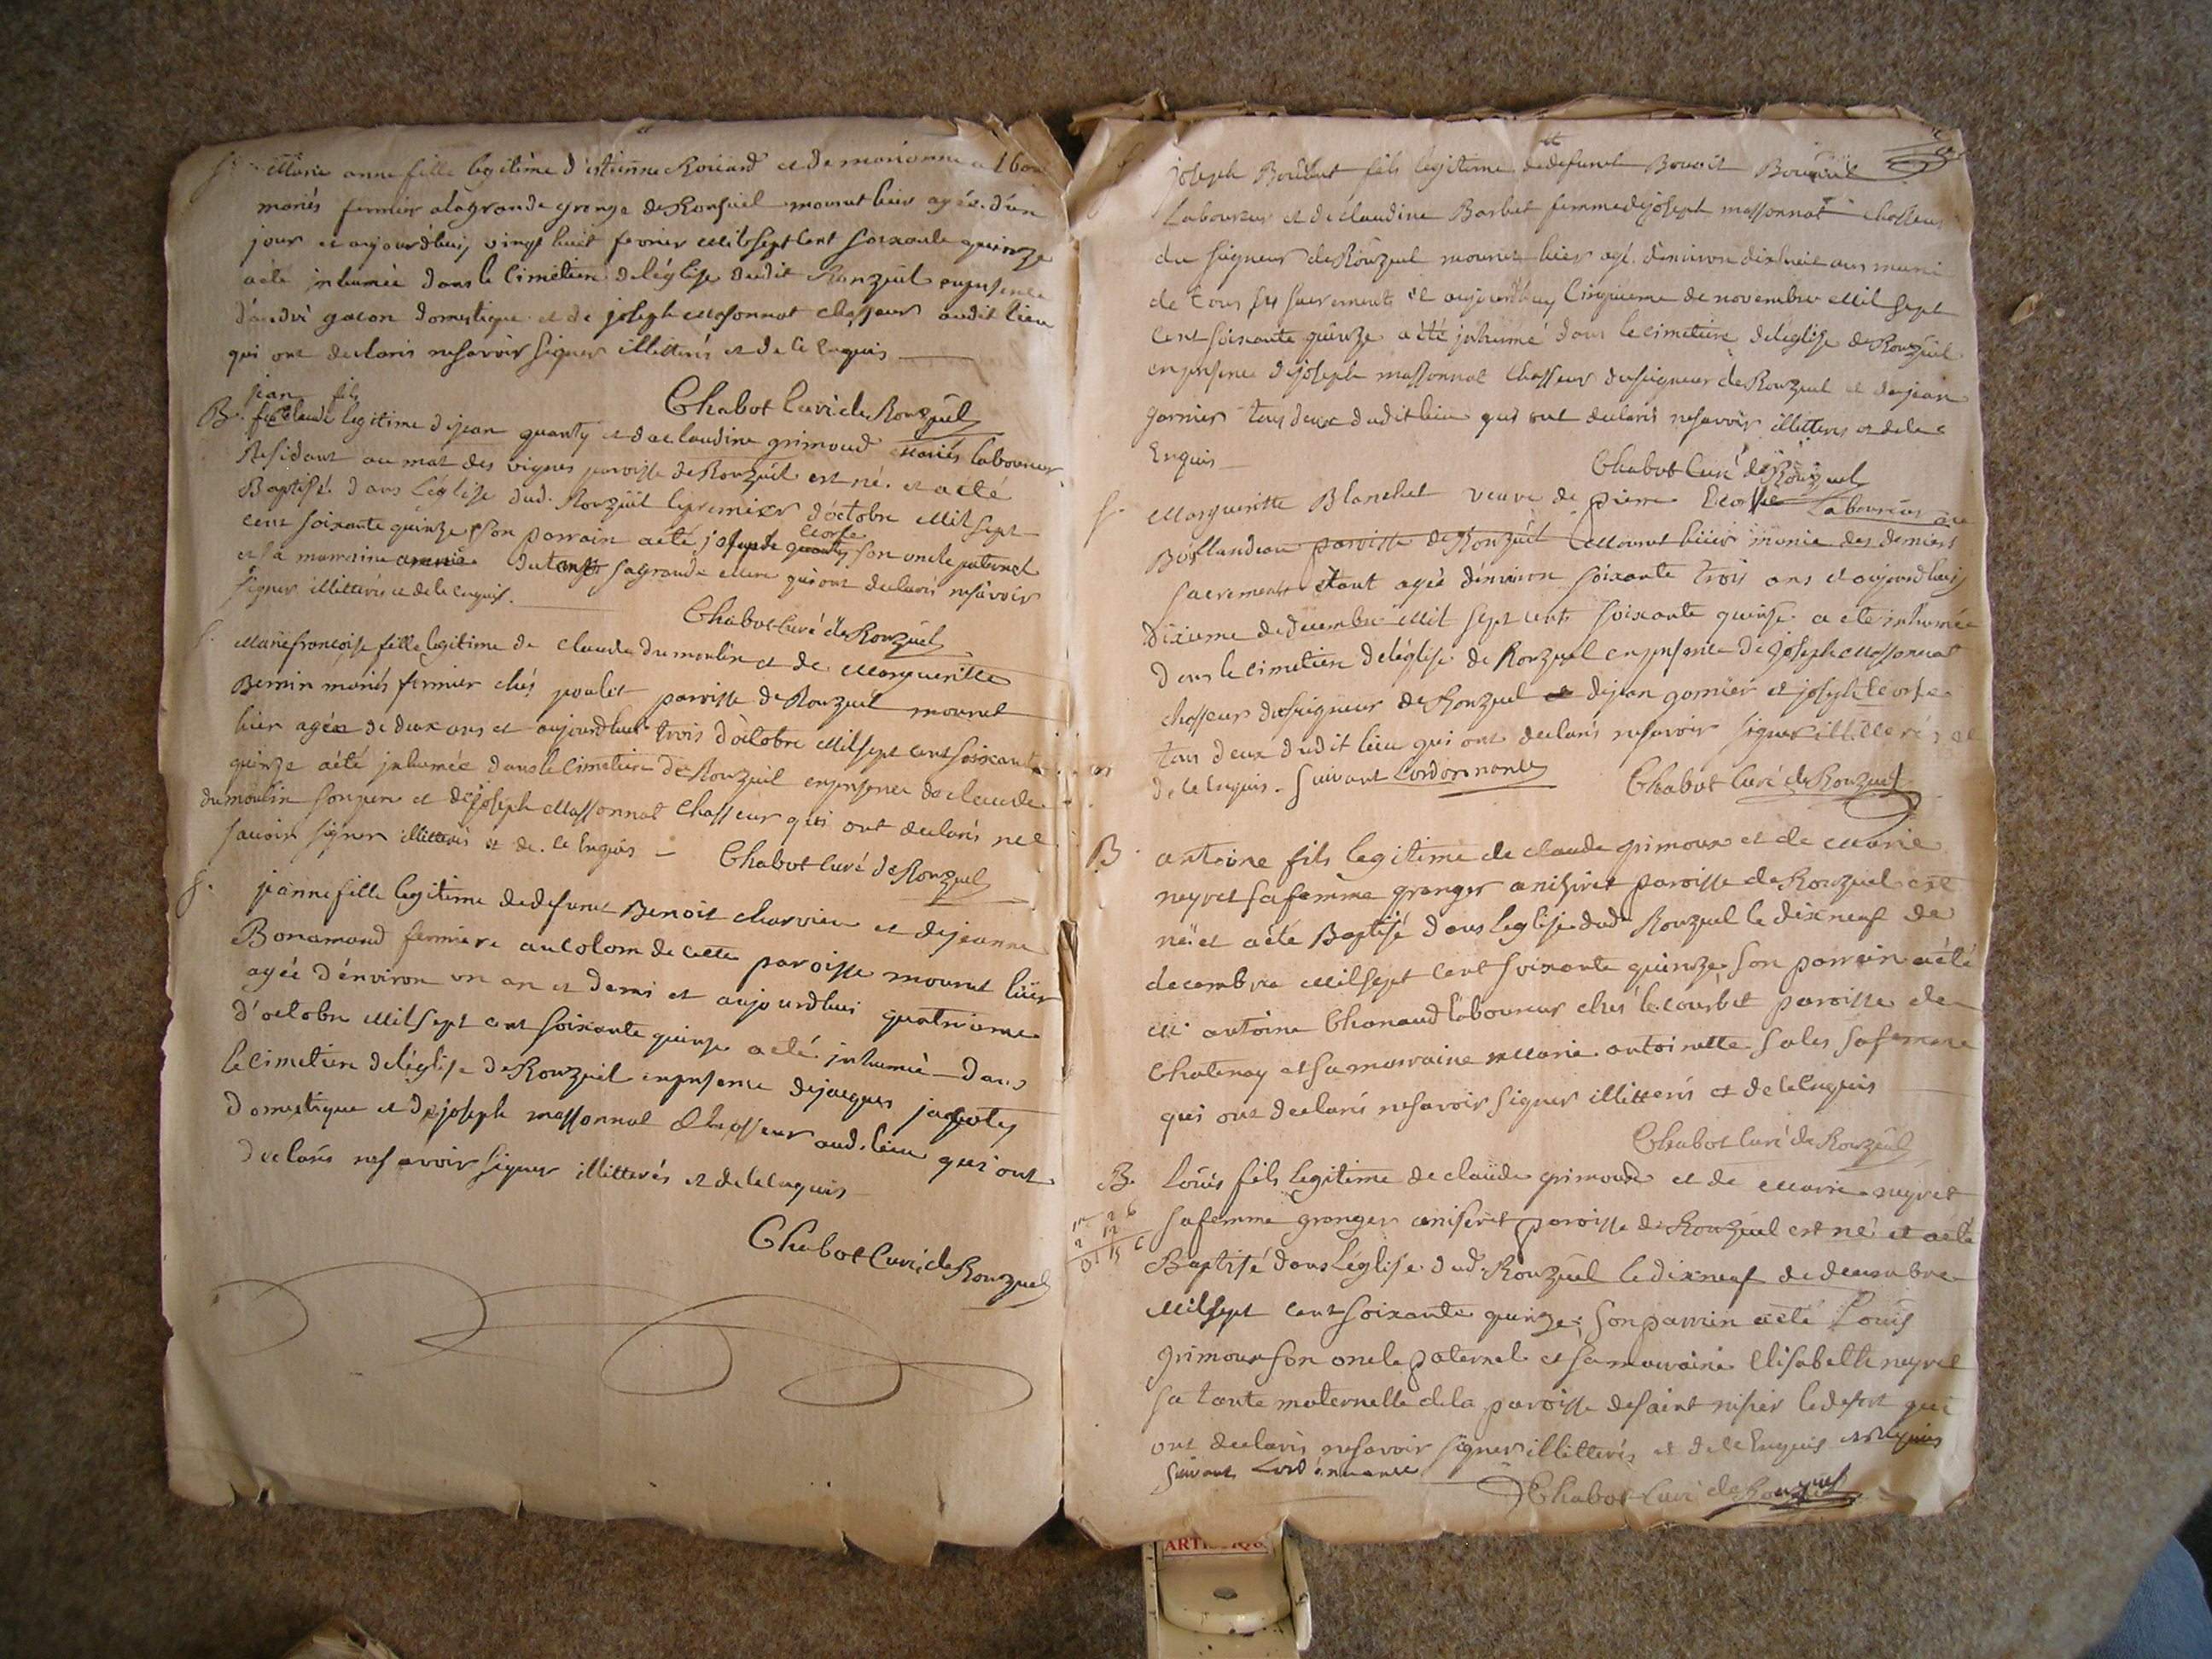 S. Marie anne fille legitime d'estienne Roüard et de marianne
mariés fermier alagrande grange de Ronzuel mourut hier agée d'un
jour et aujourdhuy vingt huit fevrier Mil sept cent soixante quinze
aété inhumée dans le Cimetiere deléglise dudit Ronzuel enpresence
d'andré gacon domestique et de joseph Massonnat chasseur audit lieu
qui ont declarés nesavoir signer illitterés et de ce Enquis
Chabot Curé de Ronzuel
jean fils
B. legitime de jean quanty et de claudine grimoud mariés laboureur
Residant au mas des vignes paroisse de Ronzuel est né et aété
Baptisé dans L'église dud. Ronzuel le premier d'octobre Mil sept
cent soixante quinze son parrain aété joseph Ecorse son oncle paternel
et sa marraine sa grande Mere qui ont declarés nesavoir
signer illitterés et de ce enquis.
Chabot Curé de Ronzuel
S. Marie francoise fille legitime de claude dumoulin et de Margueritte
Bernin mariés fermier chés poulet paroisse de Ronzuel mourut
hier agée de deux ans et aujourdhui trois d'octobre Mil sept cent soixante
quinze aété inhumée dans le Cimetiere de Ronzuel enpresence de claude
dumoulin son pere et de joseph Massonnat Chasseur qui ont declarés ne
savoir signer illitterés et de ce Enquis
Chabot Curé de Ronzuel
S. jeanne fille legitime de defunt Benoit charvieu et de jeanne
Bonamoud fermiere au colom de cette paroisse mourut hier
agée d'environ un an et demi et aujourdhui quatrieme
d'octobre Mil sept cent soixante quinze aété inhumée dans
le Cimetiere deléglise de Ronzuel enpresence de jacques
domestique et de joseph massonnat Chasseur aud. lieu qui ont
declarés nesavoir signer illitterés et de ce enquis
Chabot Curé de Ronzuel
joseph fils legitime de defunt Benoit
Laboureur et de claudine Barbet femme de joseph massonnat chasseur
du seigneur de Ronzuel mourut hier agé d'environ dixhuit ans muni
de tous ses sacrements et aujourdhuy Cinquieme de novembre Mil sept
cent soixante quinze aété inhumé dans le cimetiere deleglise de Ronzuel
enpresence de joseph massonnat chasseur duseigneur de Ronzuel et de jean
garnier tous deux dudit lieu qui ont declarés nesavoir illitterés et de ce
Enquis
Chabot Curé de Ronzuel
S. Margueritte Blanchet veuve de pierre Ecorse Laboureur au
paroisse de Ronzuel Mourut hiér munie des derniers
sacrements étant agée d'environ soixante trois ans et aujourdhuy
dixieme de decembre Mil sept cent soixante quinse a eté inhumée
dans le cimetiere deléglise de Ronzuel enpresence de joseph Massonnat
chasseur duseigneur de Ronzuel de jean garnier et joseph Ecorse
tous deux dudit lieu qui ont declarés nesavoir signer illitterés et
de ce enquis. suivant Lordonnance
Chabot Curé de Ronzuel
B. antoine fils legitime de claude grimoux et de Marie
neyret safemme granger aniseret paroisse de Ronzuel est
né et aété Baptisé dans leglise dud. Ronzuel le dix neuf de
decembre Mil sept cent soixante quinze son parrain aété
M. antoine Chanaud laboureur chés le courbet paroisse de
Chatenay et sa marraine Marie antoinette sales safemme
qui ont declarés nesavoir signer illitterés et de ce Enquis
Chabot Curé de Ronzuel
B. Loüis fils legitime de claude grimoux et de Marie neyret
safemme granger aniseret paroisse de Ronzuel est né et aété
Baptisé dans l'église dud. Ronzuel le dixneuf de decembre
Mil sept cent soixante quinze; son parrain aété Loüis
grimoux son oncle paternel et sa marraine Elisabeth neyret
sa tante maternelle dela paroisse de saint nisier ledesert qui
ont declarés nesavoir signer illitterés et de ce Enquis
suivant Lordonnance
Chabot Curé de Ronzuel